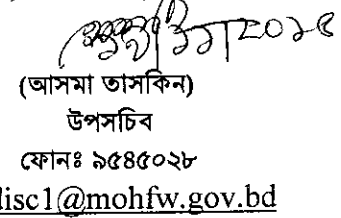 (আসমা তাসকিন)
উপসচিব
ফোনঃ ৯৫৪৫০২৮
disc1@mohfw.gov.bd